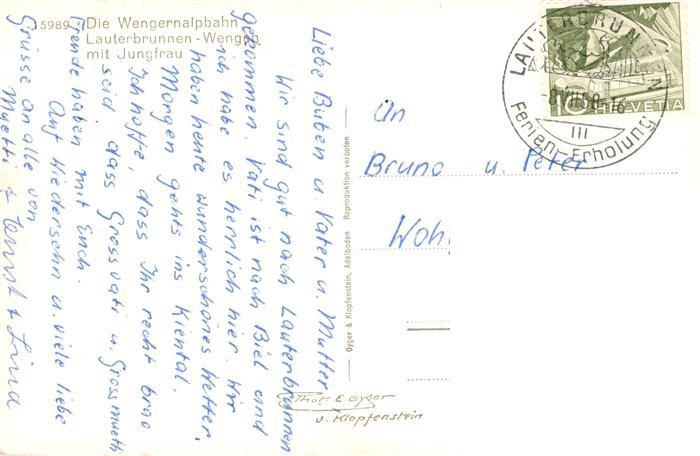 15989 Die Wengernalpbahn
Lauterbrunnen - Wengen
mit Jungfrau
Liebe Buben u. Vater u. Mutter,
Wir sind gut nach Lauterbrunnen
gekommen. Vati ist nach Biel und
ich habe es herrlich hier. Wir
haben heute wunderschönes Wetter.
Morgen gehts ins Kiental.
Ich hoffe, dass Ihr recht brav
seid, dass Grossvati u. Grossmuetti
Freude haben mit Euch.
Auf Wiedersehn u. viele liebe
Grüsse an alle von
Muetti + Ernst + Lina
Gyger & Klopfenstein, Adelboden Reproduktion verboten
An
Bruno u. Peter
Woh
Phot. E. Gyger
u. Klopfenstein
LAUTERBRUNNEN
Ferien-Erholung
10 HELVETIA